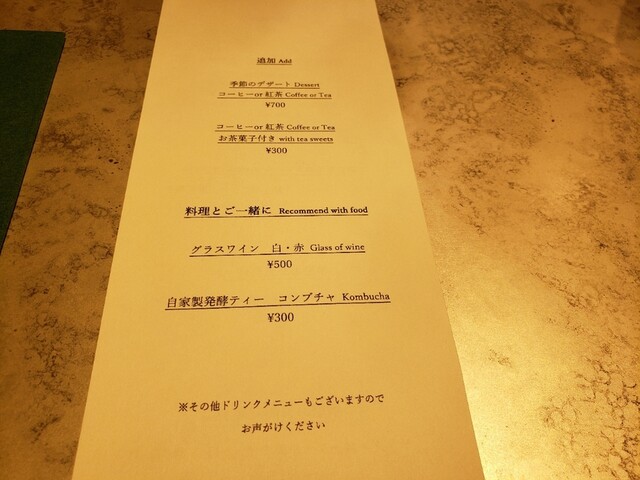 追加 Add
季節のデザート Dessert
コーヒーor 紅茶 Coffee or Tea
¥700
コーヒーor 紅茶 Coffee or Tea
お茶菓子付き with tea sweets
¥300
料理とご一緒に Recommend with food
グラスワイン 白・赤 Glass of wine
¥500
自家製発酵ティー コンブチャ Kombucha
¥300
※その他ドリンクメニューもございますので
お声がけください